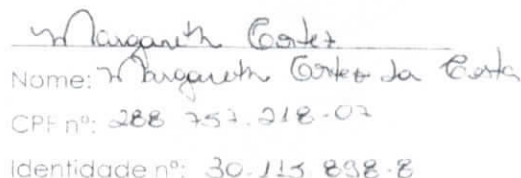 Margareth Cortez
Nome: Margareth Cortez da Costa
CPF nº: 288 757.218-07
Identidade nº: 30.115 898-8